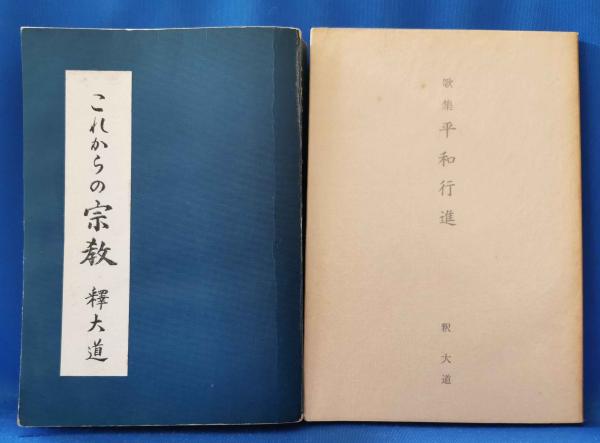 これからの宗教
釋大道
歌集 平和行進
釈大道